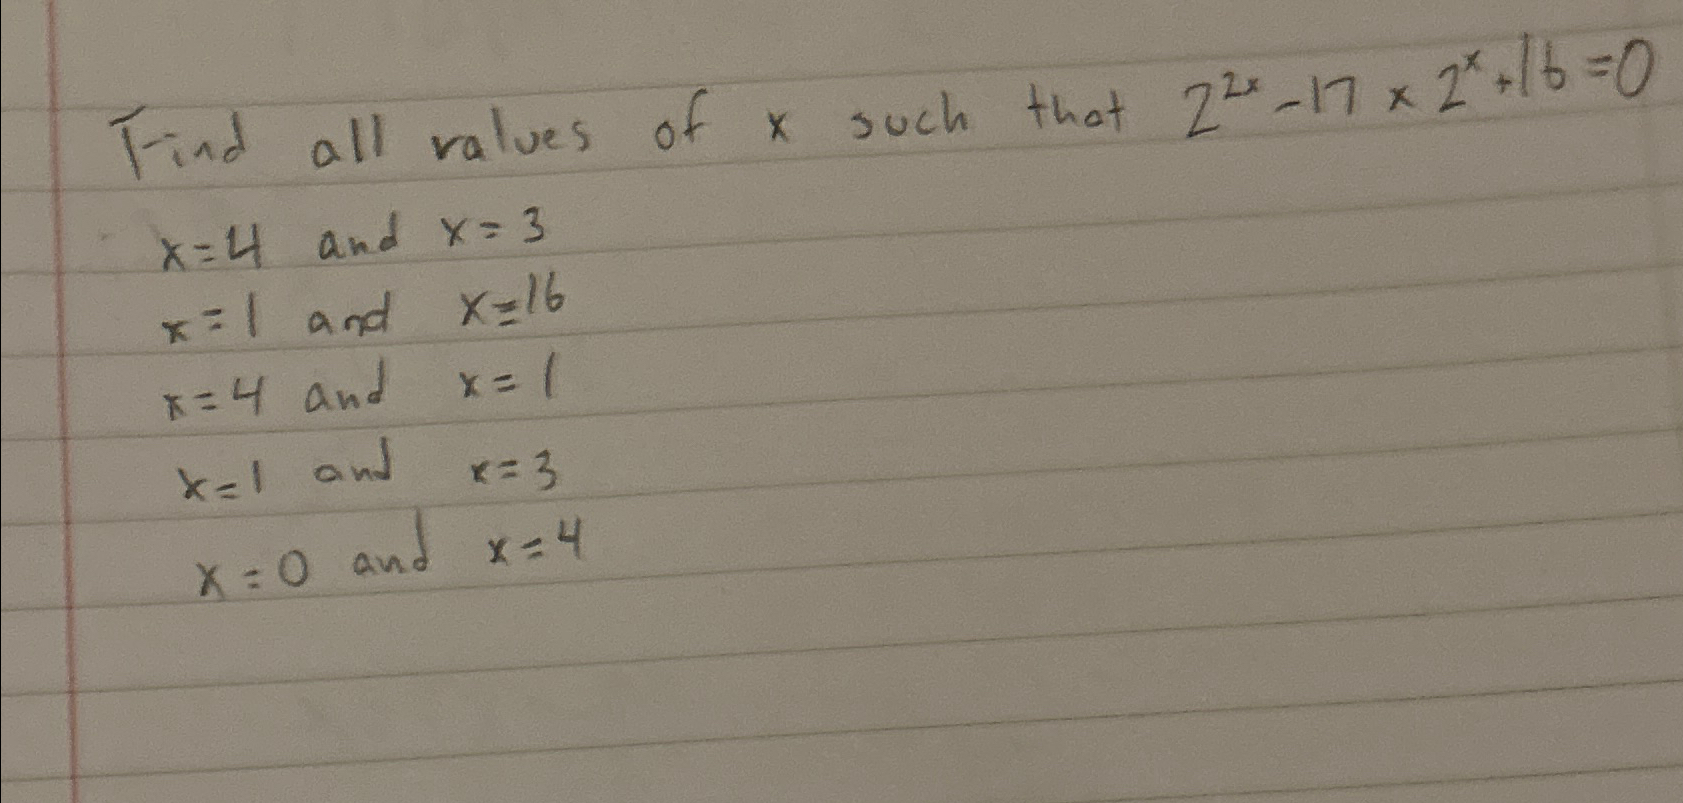 Find all values of x such that 2^{2x} - 17 × 2^x + 16 = 0
x = 4 and x = 3
x = 1 and x = 16
x = 4 and x = 1
x = 1 and x = 3
x = 0 and x = 4